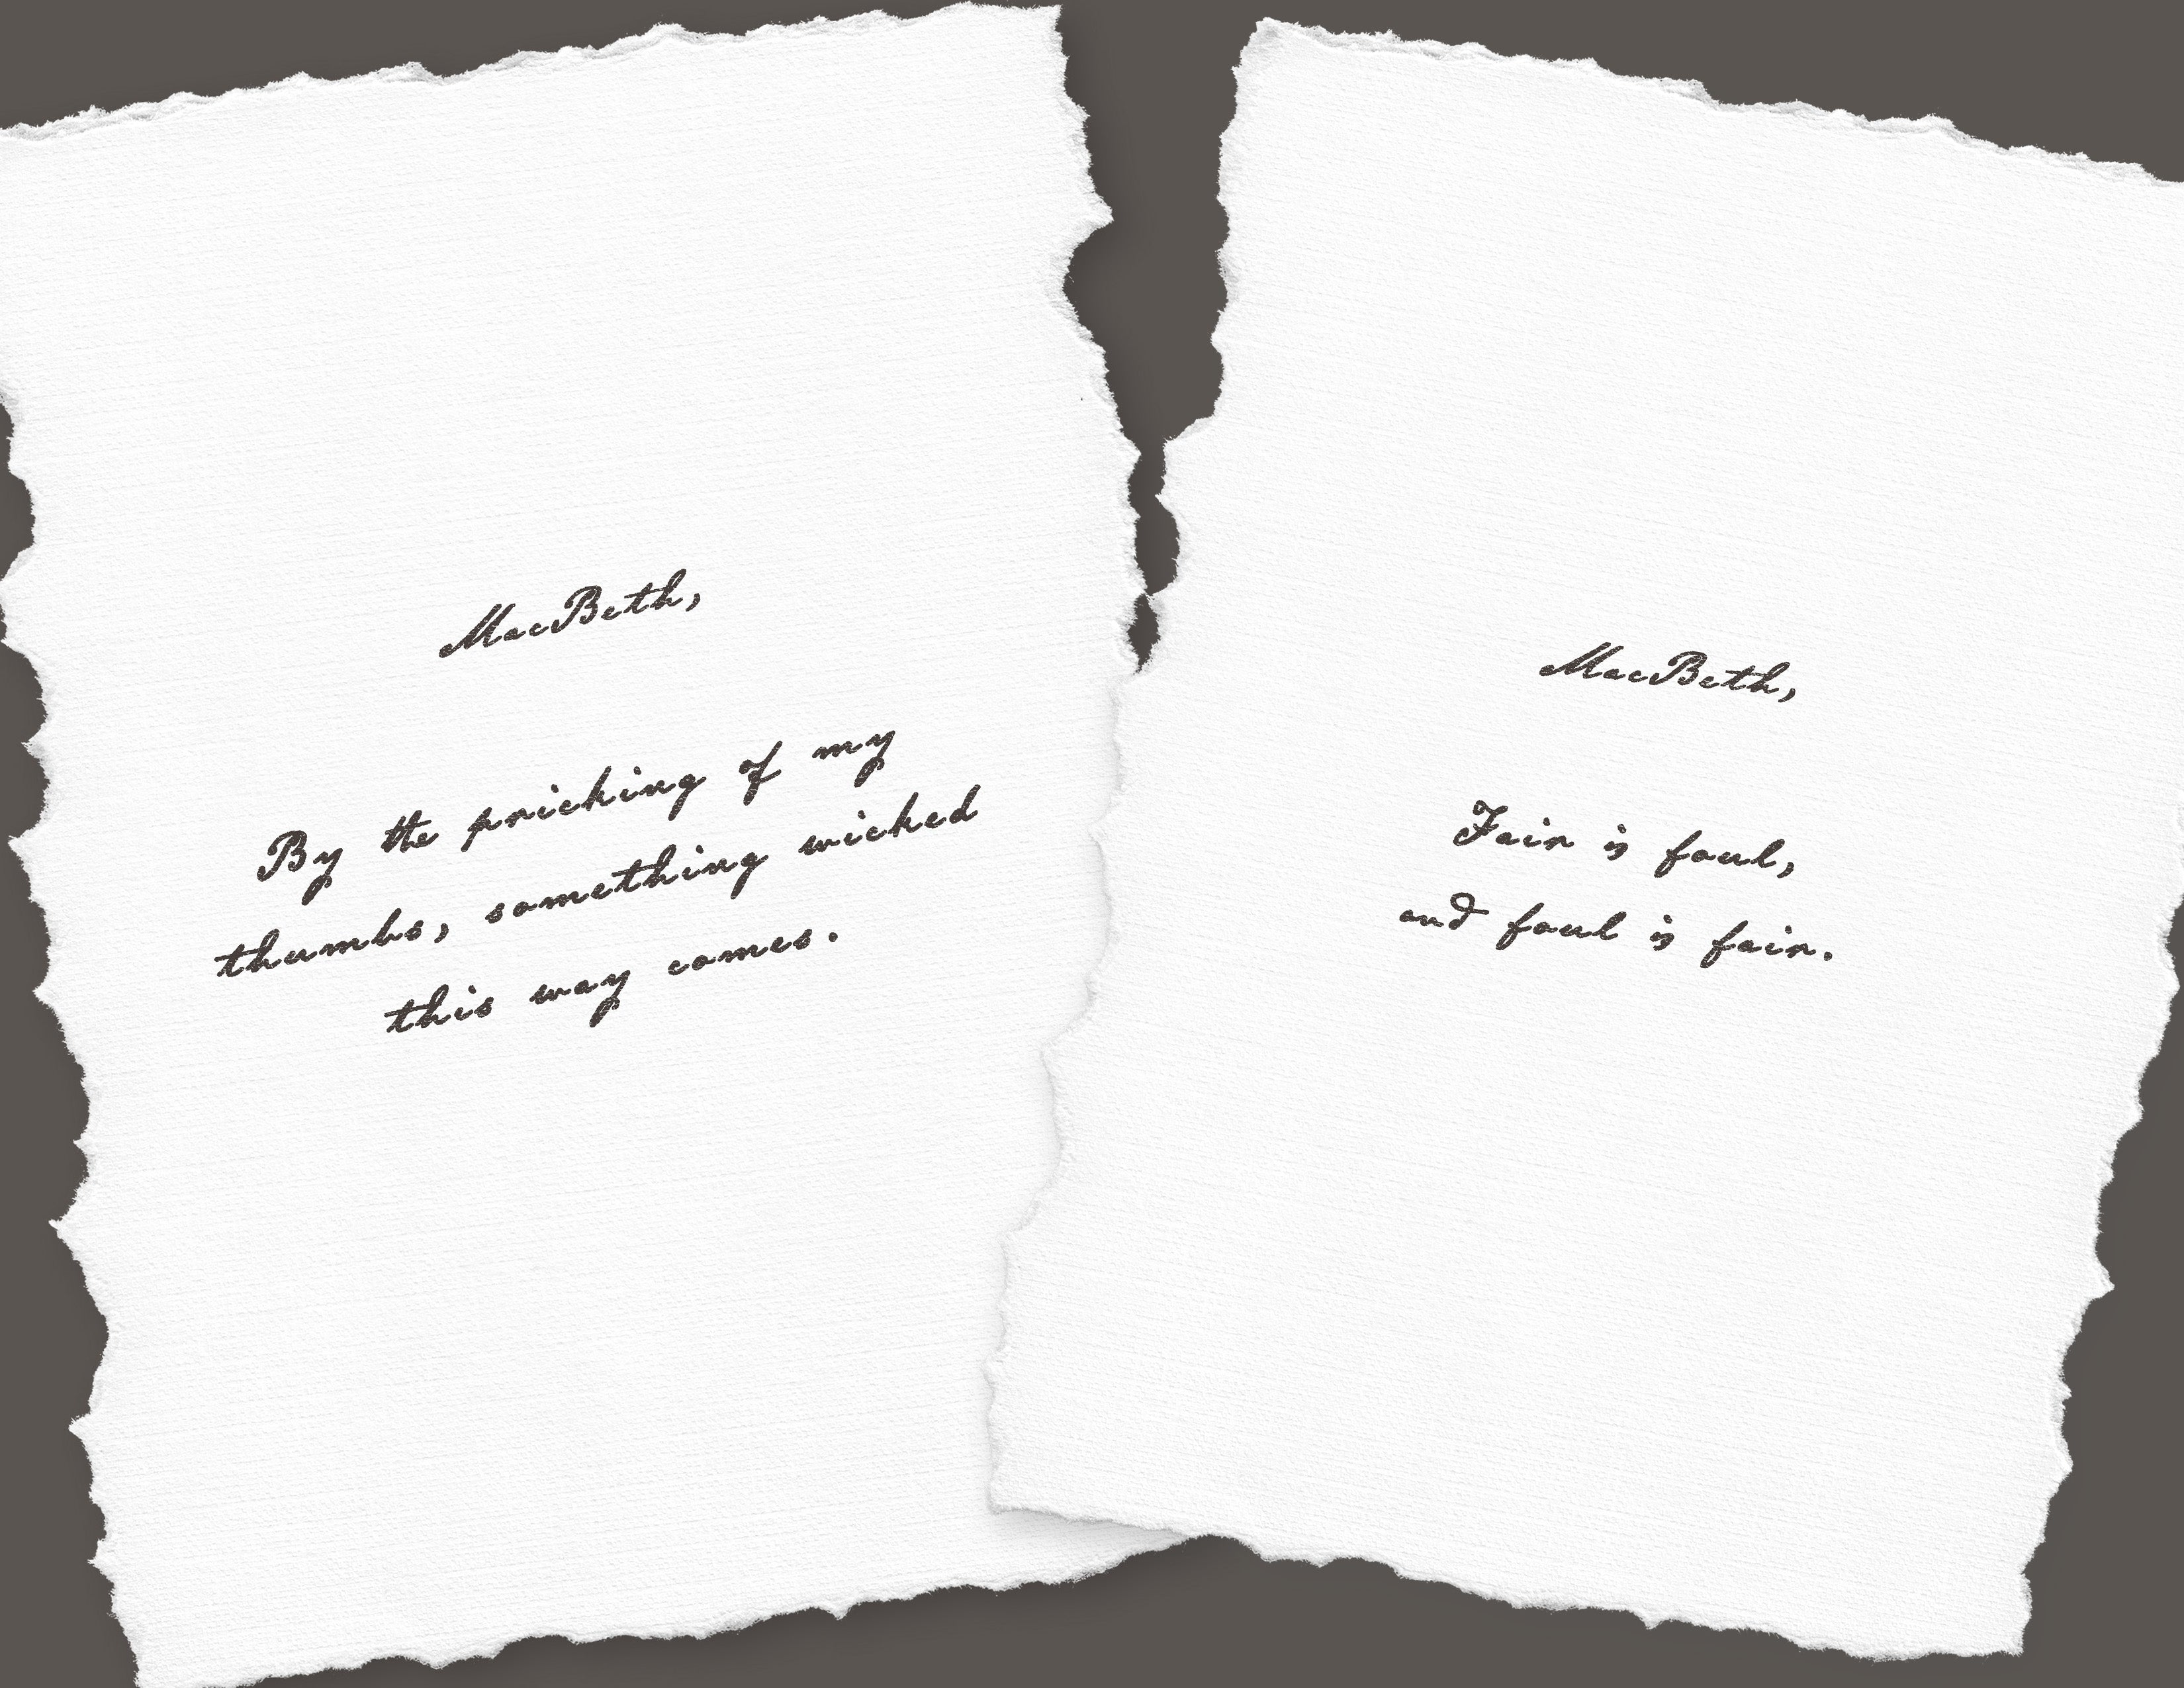 MacBeth,
By the pricking of my
thumbs, something wicked
this way comes.
MacBeth,
Fair is foul,
and foul is fair.